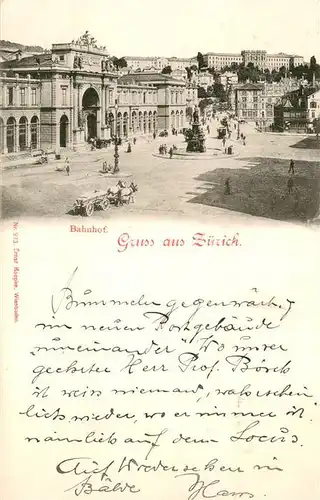 Bahnhof.
Gruss aus Zürich.
No. 913. Ernst Roepke, Wiesbaden.
Bummeln gegenwärtig
im neuen Postgebäude
"umeinander" Wo unser
geehrter Herr Prof. Börsch
ist weiss niemand, wahrschein
lich wieder, wo er immer ist
nämlich auf dem Locus.
Auf Wiedersehen in
Bälde Hans